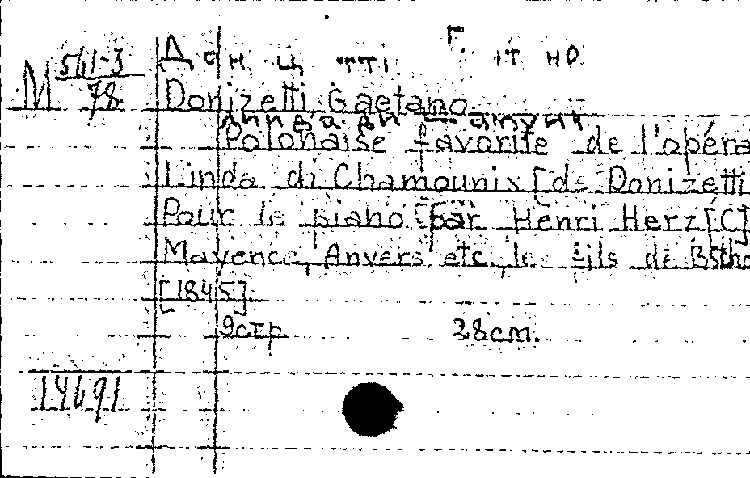 М 561-3
78
Donizetti Gaetano
Polonaise favorite de l'opéra
Linda di Chamounix [de Donizetti
Pour le piano [par Henri Herz [C]
Mayence, Anvers etc. les fils de
[1845]
9стр 28cm.
14691